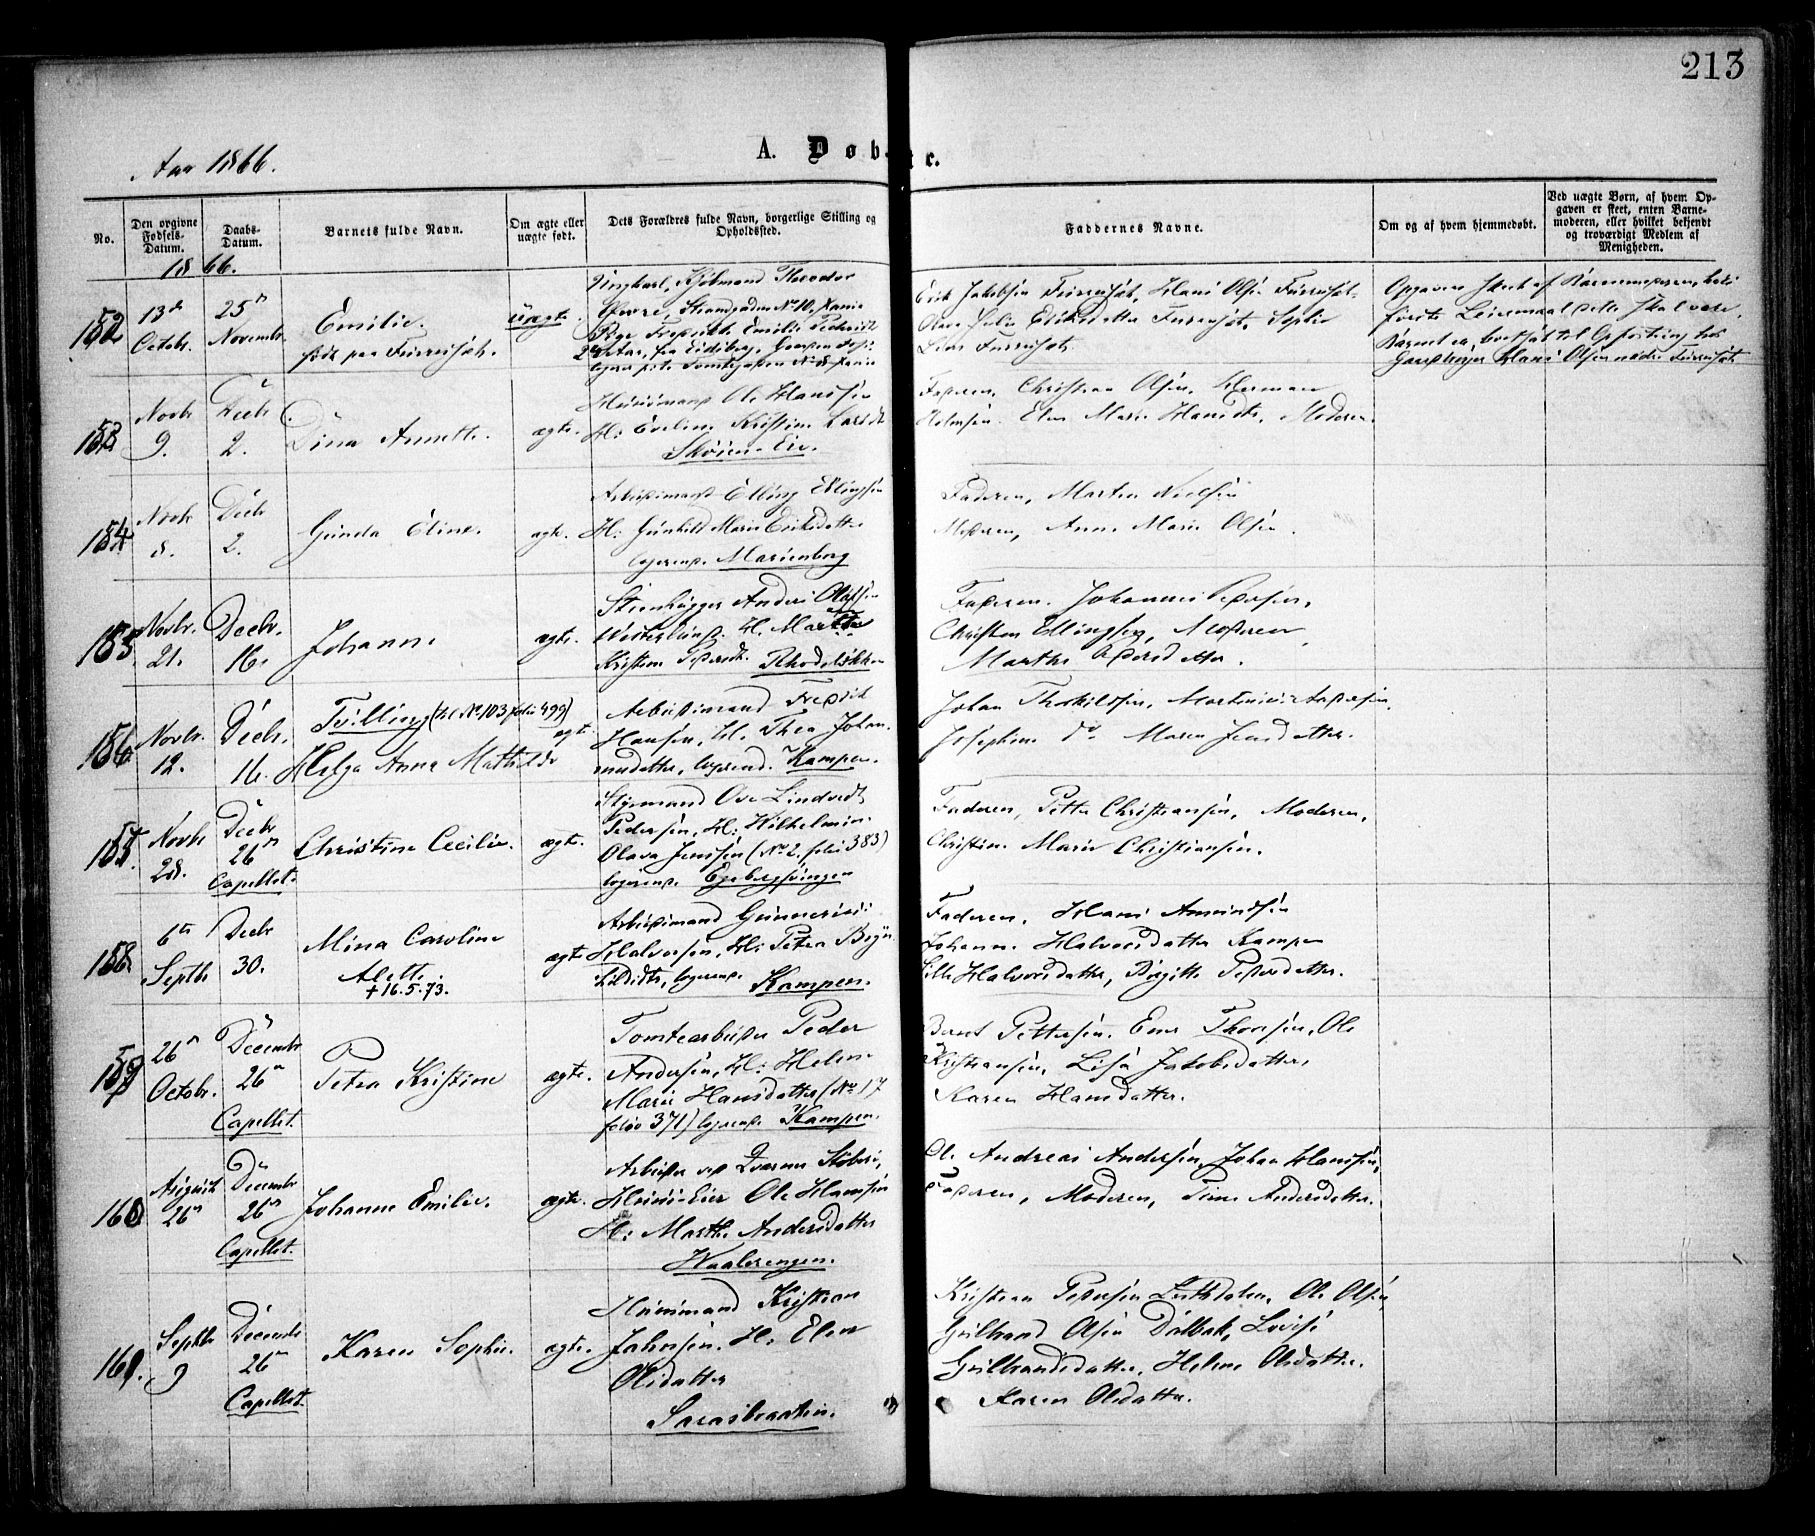 213
Aar 1866.
A. Døb
te.
No.
Den opgivne Fødsels-Datum.
Daabs-Datum.
Barnets fulde Navn.
Om ægte eller uægte født.
Dets Forældres fulde Navn, borgerlige Stilling og Opholdssted.
Faddernes Navne.
Om og af hvem hjemmedøbt.
Ved uægte Børn, af hvem Opgaven er skeet, enten Barnemoderen, eller hvilket bekjendt og troværdigt Medlem af Menigheden.
1866.
152
13de Octobr.
25de Novembr
Emilie.
født paa
uægte.
Ungkarl, Kjøbmand Theodor
No 10, Pige Fredrikke Emilie
Erik Jakobsen Hans Olsen
Olava Julie Eriksdatter Sophie
Opgaven skeet af Barnemoderen, hvis
første Leiermaal dette skal være.
Barnet er bortsat til Opfostring hos
Hans Olsen nedre
153
Novbr 9.
Decbr 2.
Dina Annette.
ægte.
Huusmand Ole Hanssen
H: Eveline Kristine Larsdt
Skøien-Eie.
Faderen, Christian Olsen, Herman
Holmsen. Elen Marie Hansdtr, Moderen.
154
Novbr 8.
Decbr 2.
Gunda Eline.
ægte.
Arbeidsmand Elling Ellingsen
H: Gunhild Marie Eriksdatter
logerend. Marienborg
Faderen, Morten Nielsen
Moderen, Anne Marie Olsen.
155
Novbr. 21.
Decbr. 16.
Johanne
ægte.
Steenhugger Anders Olafsen
H. Marthe
Kristine Pedersdt. Rhodeløkken
Faderen. Johannes Pedersen,
Christen Ellingsen, Moderen
Marthe Pedersdatter.
156
Novbr. 12.
Decbr. 16.
Tvilling (til No. 103 folio 499)
Helga Anna Mathilde
ægte.
Arbeidsmand Fredrik
Hansen, H. Thea Johan-
nesdatter, logerend. Kampen.
Johan Thorkildsen,
Josephine do Maren Jensdatter.
157.
Novbr 28.
Decbr 26de
Capellet.
Christine Cecilie.
ægte.
Styrmand Ove Lindvedt
Pedersen, H: Wilhelmine
Olava Jenssen (No 2, folio 383)
logerend. Egebergsvingen
Faderen, Petter Christiansen, Moderen,
Christine Marie Christiansen.
158.
6te Septbr
Decbr 30.
Mina Caroline
Alette
+ 16.5.73.
ægte
Arbeidsmand Gunnerius
Halvorsen, H: Petra
logerend. Kampen.
Faderen, Hans Amundsen
Johanne Halvorsdatter Kampen
Halvorsdatter, Birgitte Pedersdatter.
159
26de Octobr.
Decembr 26de
Capellet.
Petra Kristine
ægte.
Tomtearbeider Peder
Andersen, H: Helene
Marie Hansdatter (No 17
folio 371) logerend. Kampen.
Bernt Pettersen. Thoresen, Ole
Kristiansen, Lisa Jakobsdatter,
Karen Hansdatter.
160
August 26de
Decembr 26de
Capellet.
Johanne Emilie.
ægte.
Arbeider ved Qværner Støberi,
Huuseier Ole Hansen
H: Marthe Andersdatter
Vaalerengen.
Ole Andreas Andersen, Johan Hanssen,
Faderen, Moderen, Andersdatter.
161.
Septbr 9
Decembr 26de
Capellet.
Karen Sophie.
ægte.
Huusmand Kristian
Johnsen. H: Elen
Olsdatter
Sarasbraaten.
Kristian Pedersen Ole Olsen
Gulbrand Olsen Dølbak, Lovise
Gulbrandsdatter, Helene Olsdatter.
Karen Olsdatter.